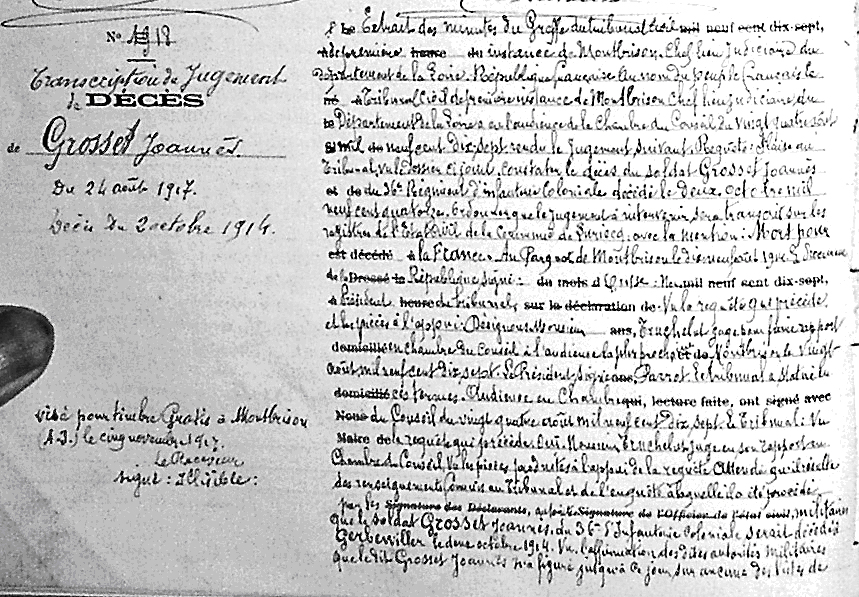 No 18
Transcription de Jugement
de DÉCÈS
de Grosset Joannès.
Du 24 août 1917.
Décès Du 2 octobre 1914.
visé pour timbre Gratis à Montbrison
(A.J.) le cinq novembre 1917.
Le Receveur
signé : Illisible :
Extrait des minutes du Greffe du tribunal civil mil neuf cent dix-sept,
de première heure du instance de Montbrison, Chef lieu Judiciaire du
Département de la Loire. République française. Au nom du peuple français le
Tribunal Civil de première instance de Montbrison Chef lieu judiciaire du
Département de la Loire a en l'audience de la Chambre du Conseil du vingt quatre août
mil neuf cent dix sept rendu le Jugement suivant Requête : Plaise au
Tribunal, vu le dossier ci joint, constater le décès du soldat Grosset Joannès
et de du 36e Régiment d'infanterie Coloniale décédé le deux octobre mil
neuf cent quatorze. Ordonner que le Jugement à intervenir sera transcrit sur les
registres de l'Etat Civil de la Commune de Luriecq, avec la mention : Mort pour
est décédé à la France. Au Parquet de Montbrison le dix neuf août 1917
Dressé le République signé : du mois d mil neuf cent dix-sept,
Président heure du tribunal, sur la déclaration de Vu la requête qui précède
et les pièces à l'appui. Désignons Monsieur ans, Truchelut Juge pour faire rapport
domicilié en chambre du Conseil à l'audience la plus proche Montbrison le vingt
août mil neuf cent dix sept. Le Président signé Parrot. Le tribunal a statué en
domicilié ces termes. Audience en Chambre qui, lecture faite, ont signé avec
Nous du Conseil du vingt quatre août mil neuf cent dix sept. Le Tribunal : Vu
Maire de la requête qui précède. Ouï Monsieur Truchelut Juge en son rapport en
Chambre du Conseil, Vu les pièces produites à l'appui de la requête Attendu qu'il résulte
des renseignements fournis au Tribunal et de l'enquête à laquelle il a été procédé
par les Signature des Déclarants, Signature de l'Officier de l'état civil, militaires
que le soldat Grosset Joannès, du 36e d'Infanterie Coloniale serait décédé à
Gerbeviller le deux octobre 1914. Vu l'affirmation des dites autorités militaires
que le dit Grosset Joannès n'a figuré jusqu'à ce jour sur aucune des listes de